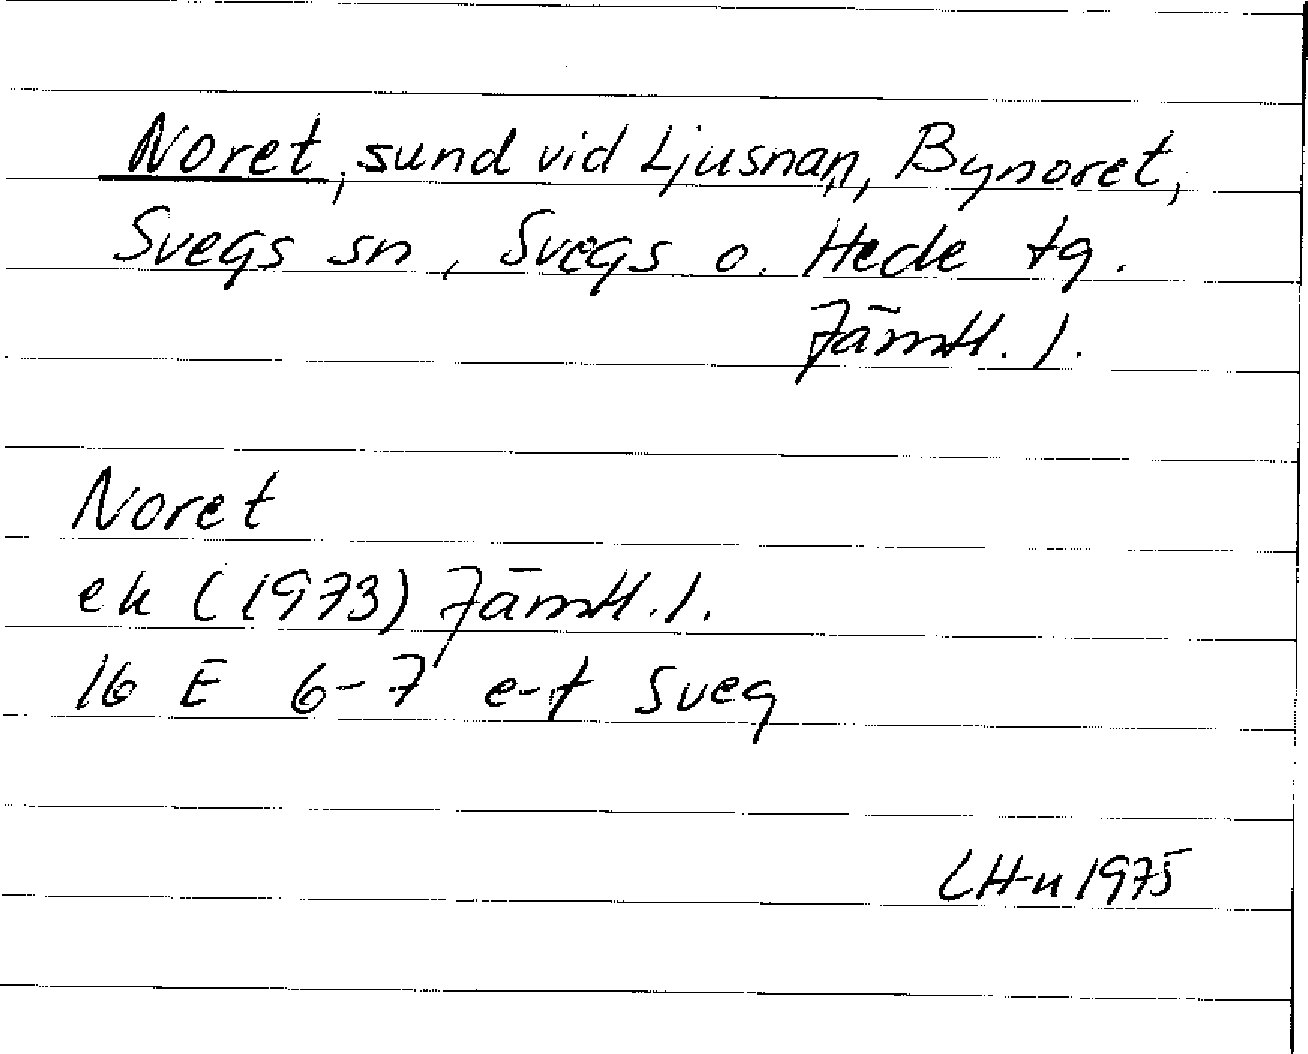 Noret, sund vid Ljusnan, Bynoret,
Svegs sn, Svegs o. Hede tg.
Jämtl. l.
Noret
ek (1973) Jämtl. l.
16 E 6-7 e-f Sveg
LH-n 1975